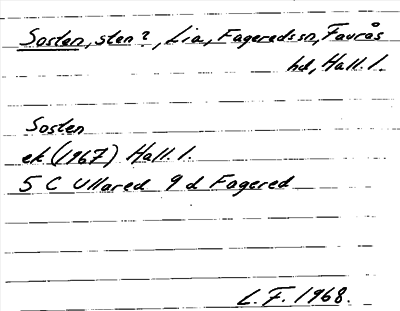 Sosten, sten?, Lia, Fageredssn, Faurås
hd, Hall. l.
Sosten
ek (1967) Hall. l.
5 C Ullared 9 d Fagered
L. F. 1968.